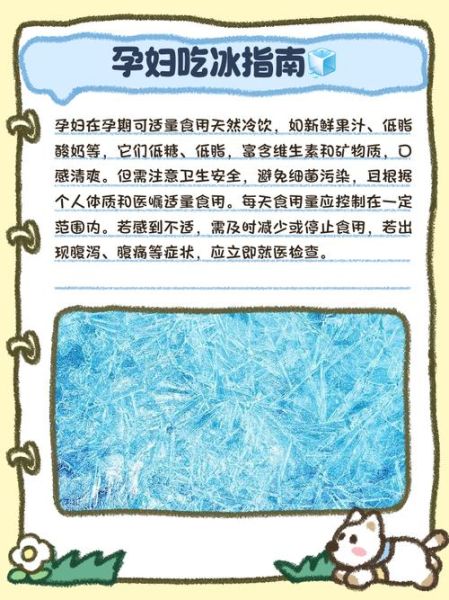 孕妇吃冰指南
孕妇在孕期可适量食用天然冷饮，如新鲜果汁、低脂
酸奶等，它们低糖、低脂，富含维生素和矿物质，口
感清爽。但需注意卫生安全，避免细菌污染，且根据
个人体质和医嘱适量食用。每天食用量应控制在一定
范围内。若感到不适，需及时减少或停止食用，若出
现腹泻、腹痛等症状，应立即就医检查。